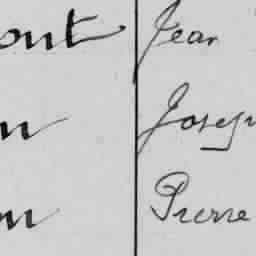 ont Jean
n Joseph
on Pierre